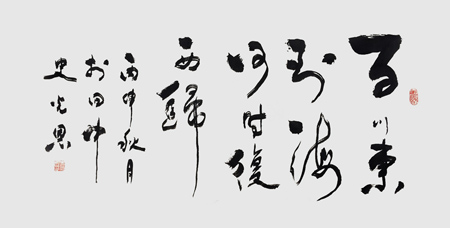 百川東
到海
何時復
西歸
丙申秋月
於
史